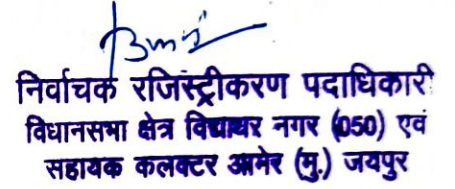 निर्वाचक रजिस्ट्रीकरण पदाधिकारी
विधानसभा क्षेत्र विद्याधर नगर (050) एवं
सहायक कलक्टर आमेर (मु.) जयपुर